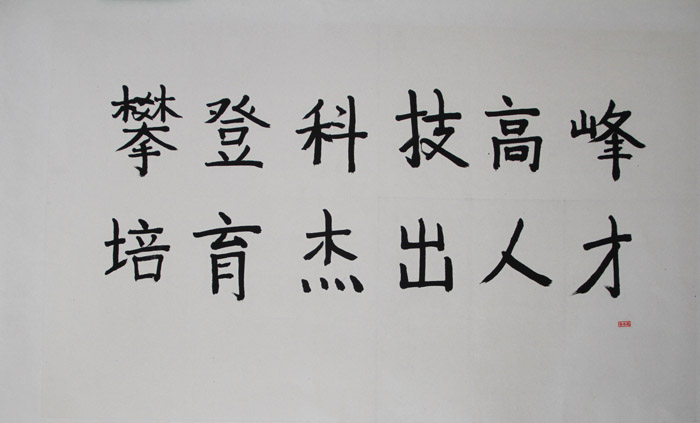 攀登科技高峰
培育杰出人才